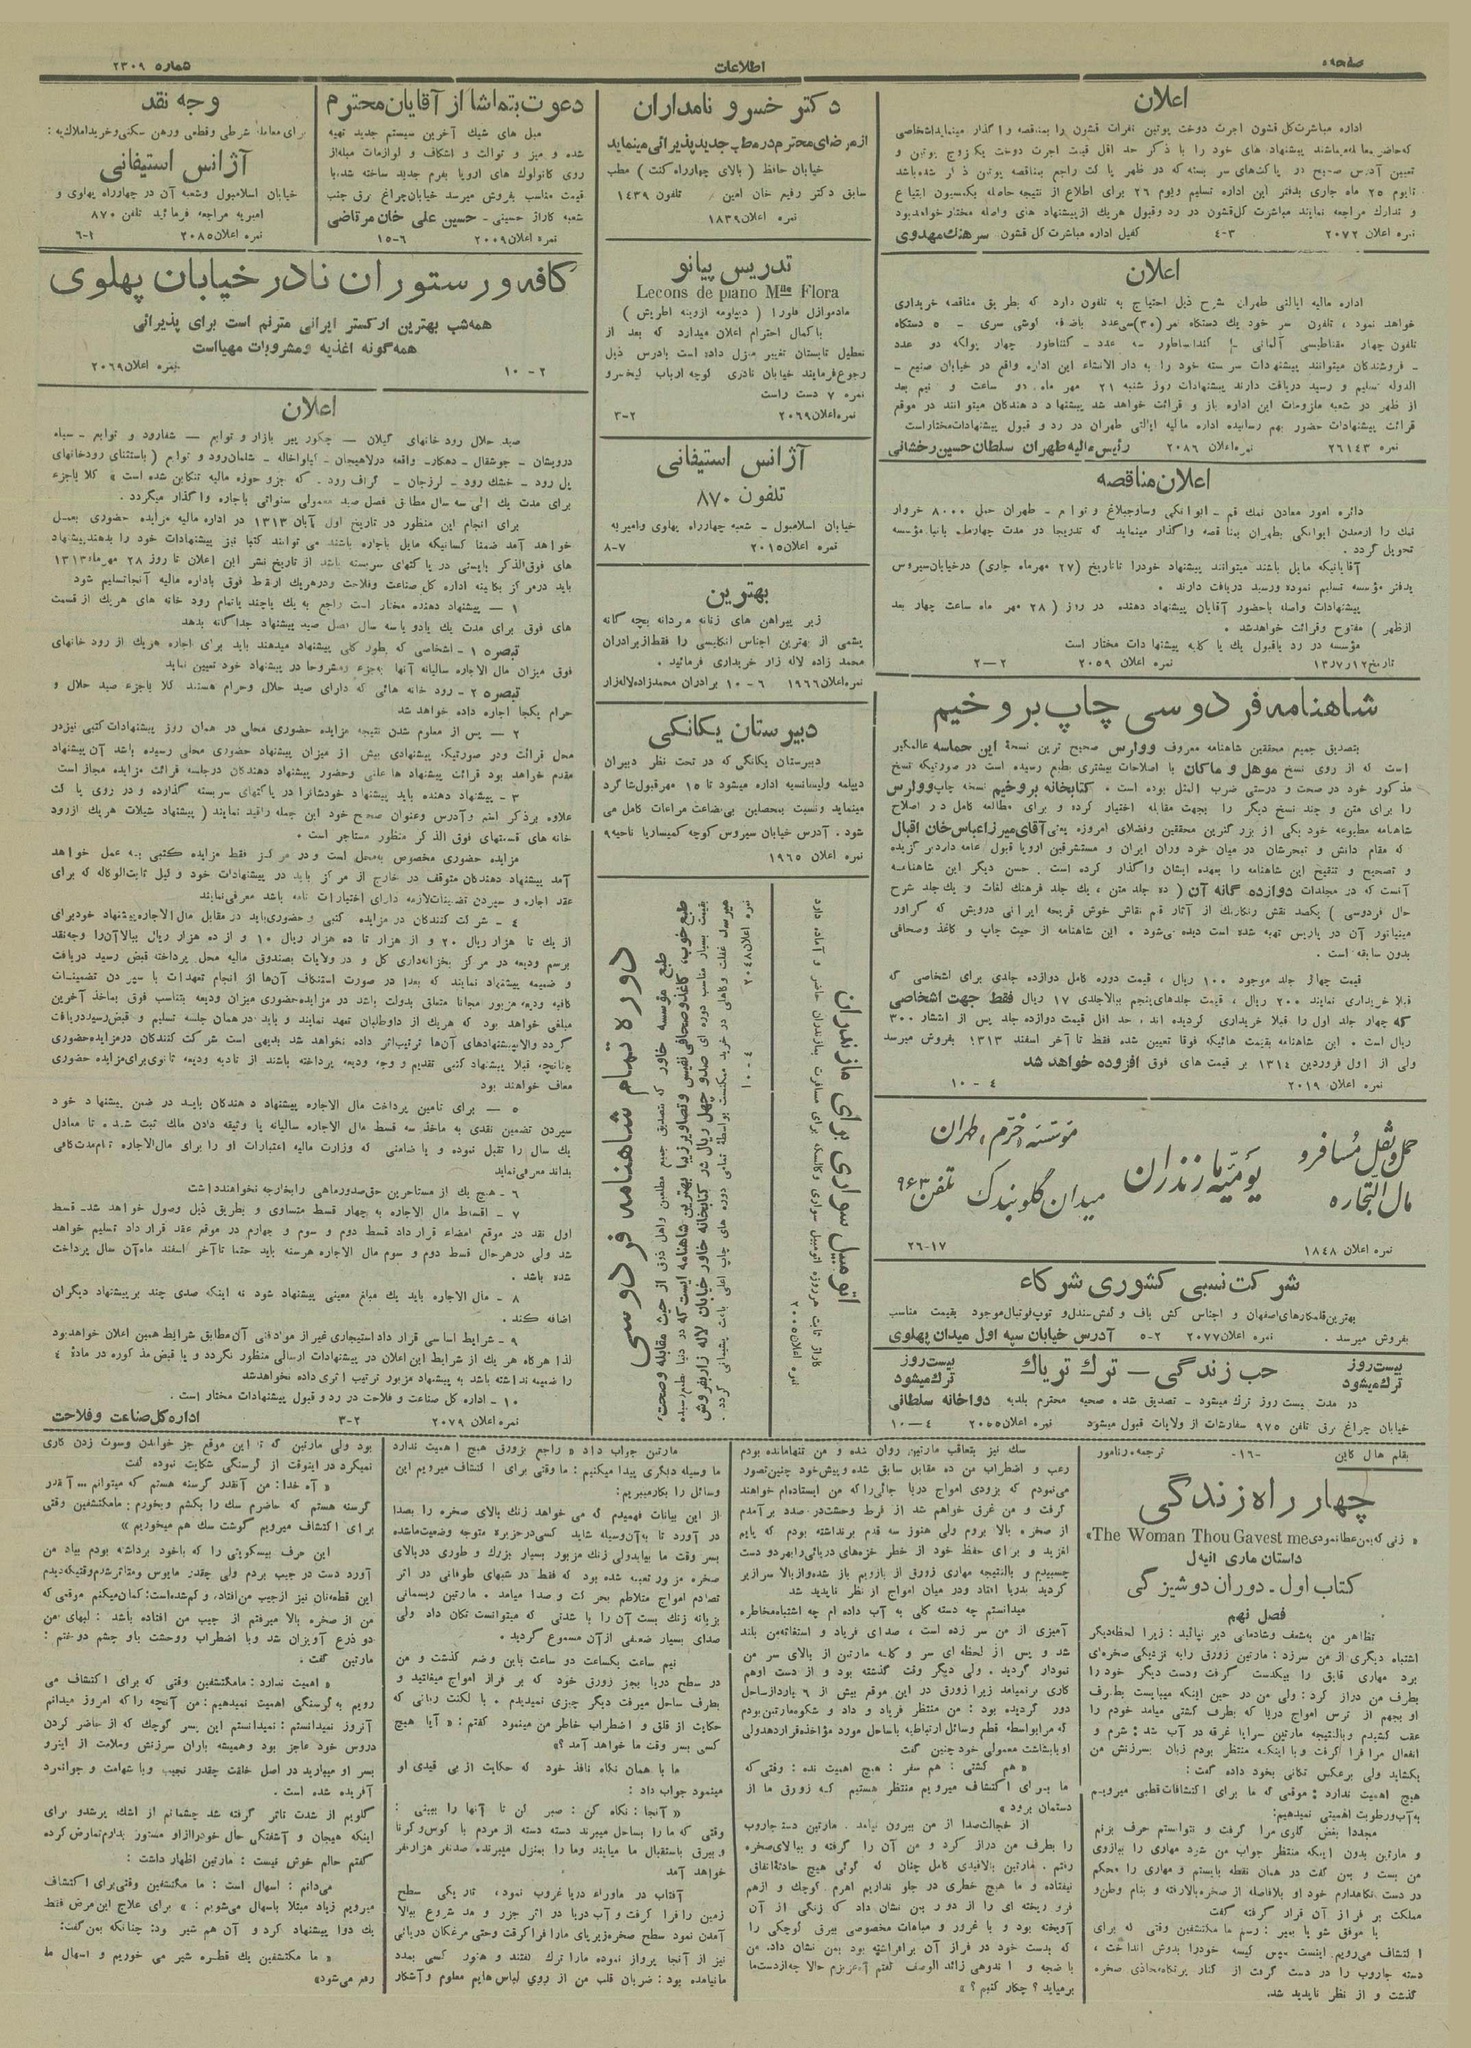 صفحه ۵
اطلاعات
شماره ۲۳۰۹
اعلان
اداره مباشرت کل قشون اجرت دوخت پوتین نفرات قشون را بمناقصه واگذار مینماید اشخاصی
که حاضر معامله میباشند پیشنهاد های خود را با ذکر حد اقل قیمت اجرت دوخت یکزوج پوتین و
تعیین آدرس صحیح در پاکت های سر بسته که در ظهر پاکت راجع بمناقصه پوتین ذکر شده باشد
تا یوم ۲۵ ماه جاری بدفتر این اداره تسلیم ویوم ۲۶ برای اطلاع از نتیجه حاصله بکمسیون ابتیاع
و تدارک مراجعه نمایند مباشرت کل قشون در رد وقبول هریک از پیشنهاد های واصله مختار خواهد بود
نمره اعلان ۲۰۷۲ ۴-۳ کفیل اداره مباشرت کل قشون سرهنك مهدوی
اعلان
اداره مالیه ایالتی طهران شرح ذیل احتیاج به تلفون دارد که بطریق مناقصه خریداری
خواهد نمود ، تلفون سر خود یك دستگاه نمر (۳۰) سی عدد باضافه گوشی سری - ۵ دستگاه
- فروشندگان میتوانند پیشنهادات سر بسته خود را به دار الانشاء این اداره واقع در خیابان صنیع -
الدوله تسلیم و رسید دریافت دارند پیشنهادات روز شنبه ۲۱ مهر ماه دو ساعت و نیم بعد
از ظهر در شعبه ملزومات این اداره باز و قرائت خواهد شد پیشنهاد دهندگان میتوانند در موقع
قرائت پیشنهادات حضور بهم رسانیده اداره مالیه ایالتی طهران در رد و قبول پیشنهادات مختار است
نمره ۲۶۱۴۳ نمره اعلان ۲۰۸۶ رئیس مالیه طهران سلطان حسین رخشانی
اعلان مناقصه
دائره امور معادن نمك قم - ایوانکی وساوجبلاغ و توابع - طهران حمل ۸۰۰۰ خروار
نمك را ازمعدن ایوانکی بطهران بمناقصه واگذار مینماید که تدریجا در مدت چهارماه بانبار مؤسسه
تحویل گردد .
آقایانیکه مایل باشند میتوانند پیشنهاد خودرا تاتاریخ (۲۷ مهرماه جاری) درخیابان سیروس
بدفتر مؤسسه تسلیم نموده ورسید دریافت دارند .
پیشنهادات واصله باحضور آقایان پیشنهاد دهنده در روز ( ۲۸ مهر ماه ساعت چهار بعد
ازظهر ) مفتوح وقرائت خواهد شد .
مؤسسه در رد یاقبول یك یا کلیه پیشنهادات مختار است
تاریخ ۱۳/۷/۱۲ نمره اعلان ۲۰۵۹ ۲-۲
شاهنامه فردوسی چاپ بروخیم
بتصدیق جمیع محققین شاهنامه معروف وولرس صحیح ترین نسخهٔ این حماسه عالمگیر
است که از روی نسخ موهل و ماکان با اصلاحات بیشتری بطبع رسیده است در صورتیکه نسخ
مذکور خود در صحت و درستی ضرب المثل بوده است . کتابخانه بروخیم نسخه چاپ وولرس
را برای متن و چند نسخ دیگر را بجهت مقابله اختیار کرده و برای مطالعه کامل در اصلاح
شاهنامه مطبوعه خود یکی از بزرگترین محققین وفضلای امروزه یعنی آقای میرزا عباس خان اقبال
که مقام دانش و تبحرشان در میان خرد وران ایران و مستشرقین اروپا قبول عامه دارد برگزیده
و تصحیح و تنقیح این شاهنامه را بعهده ایشان واگذار کرده است . حسن دیگر این شاهنامه
آنست که در مجلدات دوازده گانه آن ( ده جلد متن ، یك جلد فرهنك لغات و یك جلد شرح
حال فردوسی ) یکصد نقش رنگارنك از آثار قلم نقاش خوش قریحه ایرانی درویش که گراور
مینیاتور آن در پاریس تهیه شده است دیده میشود . این شاهنامه از حیث چاپ و کاغذ وصحافی
بدون سابقه است .
قیمت چهار جلد موجود ۱۰۰ ریال ، قیمت دوره کامل دوازده جلدی برای اشخاصی که
قبلا خریداری نمایند ۲۰۰ ریال ، قیمت جلدهای پنجم ببالا جلدی ۱۷ ریال فقط جهت اشخاصی
که چهار جلد اول را قبلا خریداری کردیده اند . حد اقل قیمت دوازده جلد پس از انتشار ۳۰۰
ریال است . این شاهنامه بقیمت هائیکه فوقا تعیین شده فقط تا آخر اسفند ۱۳۱۳ بفروش میرسد
ولی از اول فروردین ۱۳۱۴ بر قیمت های فوق افزوده خواهد شد
نمره اعلان ۲۰۱۹ ۴ - ۱۰
حمل و نقل مسافر و مال التجاره
یومیه مازندران
مؤسسه اخترم ، طهران
میدان گلوبندك تلفن ۹۶۳
نمره اعلان ۱۸۴۸ ۱۷-۲۶
شرکت نسبی کشوری شرکاء
بهترین قلمکارهای اصفهان و اجناس کش باف و کفش سندل و توپ فوتبال موجود بقیمت مناسب
بفروش میرسد . نمره اعلان ۲۰۷۷ ۲-۵ آدرس خیابان سپه اول میدان پهلوی
بیست روز ترك میشود
حب زندگی - ترك تریاك
بیست روز ترك میشود
در مدت بیست روز ترك میشود - تصدیق شده صحیه محترم بلدیه دواخانه سلطانی
خیابان چراغ برق تلفن ۹۷۵ سفارشات از ولایات قبول میشود نمره اعلان ۲۰۶۵ ۴-۱۰
دکتر خسرو نامداران
از مرضای محترم در مطب جدید پذیرائی مینماید
خیابان حافظ ( بالای چهارراه کنت ) مطب
سابق دکتر رفیع خان امین تلفون ۱۴۳۹
نمره اعلان ۱۸۳۹
تدریس پیانو
Lecons de piano Mlle Flora
مادموازل فلورا ( دیپلومه ازوینه اطریش )
باکمال احترام اعلان میدارد که بعد از
تعطیل تابستان تغییر منزل داده است بآدرس ذیل
رجوع فرمایند خیابان نادری کوچه ارباب کیخسرو
نمره ۷ دست راست
نمره اعلان ۲۰۶۹ ۲-۳
آژانس استیفانی
تلفون ۸۷۰
خیابان اسلامبول - شعبه چهارراه پهلوی وامیریه
نمره اعلان ۲۰۱۵ ۷-۸
بهترین
زیر پیراهن های زنانه مردانه بچه گانه
پشمی از بهترین اجناس انگلیسی را فقط از برادران
محمد زاده لاله زار خریداری فرمائید .
نمره اعلان ۱۹۶۶ ۶ - ۱۰ برادران محمدزاده لاله زار
دبیرستان یگانگی
دبیرستان یگانگی که در تحت نظر دبیران
دیپلمه ولیسانسیه اداره میشود تا ۱۵ مهر قبول شاگرد
مینماید ونسبت بمحصلین بی بضاعت مراعات کامل می
شود . آدرس خیابان سیروس کوچه کمیساریا ناحیه ۹
نمره اعلان ۱۹۶۵
اتومبیل سواری برای مازندران
گاراژ ثابت هر روزه اتومبیل سواری وکالسکه برای مسافرت بمازندران حاضر و آماده دارد
نمره اعلان ۲۰۰۵
دوره تمام شاهنامه فردوسی
طبع مؤسسه خاور که بتصدیق جمیع مطلعین واهل ذوق از حیث مقابله وصحت ،
طبع خوب ، کاغذ و صحافی نفیس و تصاویر زیبا بهترین شاهنامه ایست که در دنیا بطبع رسیده
بقیمت بسیار مناسب دوره ای صد و چهل ریال در کتابخانه خاور خیابان لاله زار بفروش
میرسد غفلت وکاهلی در خرید ممکنست بواسطهٔ تمامی دوره های چاپ اعلی باعث پشیمانی گردد .
نمره اعلان ۲۰۴۸ ۴ - ۱۰
دعوت بتماشا از آقایان محترم
مبل های شیك آخرین سیستم جدید تهیه
شده و میز و توالت و اشکاف و لوازمات مبله از
روی کاتولوك های اروپا بفرم جدید ساخته شده با
قیمت مناسب بفروش میرسد خیابان چراغ برق جنب
شعبه گاراژ حسینی - حسین علی خان مرتاضی
نمره اعلان ۲۰۰۹ ۶-۱۵
وجه نقد
برای معامله شرطی وقطعی ورهن سکنی وخرید املاك به :
آژانس استیفانی
خیابان اسلامبول وشعبه آن در چهارراه پهلوی و
امیریه مراجعه فرمائید تلفن ۸۷۰
نمره اعلان ۲۰۸۵ ۱-۶
کافه و رستوران نادر خیابان پهلوی
همه شب بهترین ارکستر ایرانی مترنم است برای پذیرائی
همه گونه اغذیه ومشروبات مهیااست
۲ - ۱۰ نمره اعلان ۲۰۶۹
اعلان
صید حلال رود خانهای گیلان - چکور پیر بازار و توابع - شفارود و توابع - سیاه
درویشان - جوشقال - دهکاء - واقعه درلاهیجان - کیاواخاله - شلمان رود و توابع ( باستثنای رودخانهای
پل رود - خشك رود - لرزجان - گراف رود . که جزو حوزه مالیه تنکابن شده است ) کلا یاجزء
برای مدت یك الی سه سال مطابق فصل صید معمولی سنواتی باجاره واگذار میگردد .
برای انجام این منظور در تاریخ اول آبان ۱۳۱۳ در اداره مالیه مزایده حضوری بعمل
خواهد آمد ضمنا کسانیکه مایل باجاره باشند می توانند کتبا نیز پیشنهادات خود را بدهند پیشنهاد
های فوق الذکر بایستی در پاکتهای سربسته باشد از تاریخ نشر این اعلان تا روز ۲۸ مهرماه ۱۳۱۳
باید درمرکز بکابینه اداره کل صناعت وفلاحت ودر هریك از نقط فوق باداره مالیه آنجا تسلیم شود
۱ - پیشنهاد دهنده مختار است راجع به یك یاچند یاتمام رود خانه های هریك از قسمت
های فوق برای مدت یك یادو یاسه سال فصل صید پیشنهاد جداگانه بدهد
تبصره ۱ - اشخاصی که بطور کلی پیشنهاد میدهند باید برای اجاره هریك از رود خانهای
فوق میزان مال الاجاره سالیانه آنها بجزء ومشروحا در پیشنهاد خود تعیین نماید
تبصره ۲ - رود خانه هائی که دارای صید حلال وحرام هستند کلا یاجزء صید حلال و
حرام یکجا اجاره داده خواهد شد
۲ - پس از معلوم شدن نتیجه مزایده حضوری محلی در همان روز پیشنهادات کتبی نیز در
محل قرائت ودر صورتیکه پیشنهادی بیش از میزان پیشنهاد حضوری محلی رسیده باشد آن پیشنهاد
مقدم خواهد بود قرائت پیشنهاد ها علنی وحضور پیشنهاد دهندگان درجلسه قرائت مزایده مجاز است
۳ - پیشنهاد دهنده باید پیشنهاد خودشانرا در پاکتهای سربسته گذارده و در روی پاکت
علاوه برذکر اسم وآدرس وعنوان صحیح خود این جمله راقید نمایند ( پیشنهاد شیلات هریك ازرود
خانه های قسمتهای فوق الذکر منظور مستاجر است .
مزایده حضوری مخصوص بمحل است ودر مرکز فقط مزایده کتبی به عمل خواهد
آمد پیشنهاد دهندگان متوقف در خارج از مرکز باید در پیشنهادات خود وکیل ثابت الوکاله که برای
عقد اجاره و سپردن تضمینات لازمه دارای اختیارات تامه باشد معرفی نمایند
۴ - شرکت کنندگان در مزایده کتبی وحضوری باید در مقابل مال الاجاره پیشنهاد خود برای
از یك تا هزار ریال ۲۰ و از هزار تا ده هزار ریال ۱۰ و از ده هزار ریال ببالا آن را وجه نقد
برسم ودیعه در مرکز بخزانه داری کل و در ولایات بصندوق مالیه محل پرداخته قبض رسید دریافت
و ضمیمه پیشنهاد نمایند که بعدا در صورت استنکاف آن ها از انجام تعهدات با سپردن تضمینات
کافیه ودیعه مزبور مجانا متعلق بدولت باشد در مزایده حضوری میزان ودیعه بتناسب فوق بماخذ آخرین
مبلغی خواهد بود که هریك از داوطلبان تعهد نمایند و باید در همان جلسه تسلیم و قبض رسید دریافت
گردد والا بپیشنهادهای آن ها ترتیب اثر داده نخواهد شد بدیهی است شرکت کنندگان در مزایده حضوری
چنانچه قبلا پیشنهاد کتبی تقدیم و وجه ودیعه پرداخته باشند از تادیه ودیعه ثانوی برای مزایده حضوری
معاف خواهند بود
۵ - برای تامین پرداخت مال الاجاره پیشنهاد دهندگان باید در ضمن پیشنهاد خود
سپردن تضمین نقدی به ماخذ سه قسط مال الاجاره سالیانه یا وثیقه دادن ملك ثبت شده تا معادل
یك سال را تقبل نموده و یا ضامنی که وزارت مالیه اعتبارات او را برای مال الاجاره تمام مدت کافی
بداند معرفی نماید
۶ - هیچ یك از مستاجرین حق صدور ماهی را بخارجه نخواهند داشت
۷ - اقساط مال الاجاره به چهار قسط متساوی و بطریق ذیل وصول خواهد شد - قسط
اول نقد در موقع امضاء قرار داد قسط دوم و سوم و چهارم در موقع عقد قرار داد تسلیم خواهد
شد ولی درهرحال قسط دوم و سوم مال الاجاره هرسنه باید حتما تا آخر اسفند ماه آن سال پرداخت
شده باشد .
۸ - مال الاجاره باید یك مبلغ معینی پیشنهاد شود نه اینکه صدی چند بر پیشنهاد دیگران
اضافه کند .
۹ - شرایط اساسی قرار داد استیجاری غیر از مواد فنی آن مطابق شرایط همین اعلان خواهد بود
لذا هرگاه هر یك از شرایط این اعلان در پیشنهادات ارسالی منظور نگردد و یا قبض مذکوره در مادهٔ ۴
را ضمیمه نداشته باشد به پیشنهاد مزبور ترتیب اثری داده نخواهد شد
۱۰ - اداره کل صناعت و فلاحت در رد و قبول پیشنهادات مختار است .
نمره اعلان ۲۰۷۹ ۲-۳ اداره کل صناعت وفلاحت
بقلم هال کاین -۱۶- ترجمه د. نامور
چهار راه زندگی
« زنی که بمن عطا نمودی The Woman Thou Gavest me»
داستان ماری انیل
کتاب اول - دوران دوشیزگی
فصل نهم
تظاهر من به شعف وشادمانی دیر نپائید : زیرا لحظه دیگر
اشتباه دیگری از من سرزد : مارتین زورق را به نزدیکی صخره ای
برد مهاری قایق را بیکدست گرفت ودست دیگر خود را
بطرف من دراز کرد : ولی من در حین اینکه میبایست بطرف
او بجهم از ترس امواج دریا که بطرف کشتی میامد خودم را
عقب کشیدم وبالنتیجه مارتین سراپا غرقه در آب شد : شرم و
انفعال مرا فرا گرفت وبا اینکه منتظر بودم زبان بسرزنش من
بگشاید ولی برعکس تکانی بخود داده گفت :
هیچ اهمیت ندارد : موقعی که ما برای اکتشافات قطبی میرویم
به آب ورطوبت اهمیتی نمیدهیم :
مجددا بغض گلوی مرا گرفت و نتوانستم حرف بزنم
و مارتین بدون اینکه منتظر جواب من شود مهاری را ببازوی
من بست و بمن گفت در همان نقطه بایستم و مهاری را محکم
در دست نگاهدارم خود او بلافاصله از صخره بالا رفته و بنام وطن و
مملکت بر فراز آن قرار گرفته گفت
یا موفق شو یا بمیر : رسم ما مکتشفین وقتی که برای
اکتشاف میرویم اینست سپس کیسه خودرا بدوش انداخت ،
دسته جاروب را در دست گرفت از کنار پرتگاه محاذی صخره
گذشت و از نظر ناپدید شد .
سك نیز بتعاقب مارتین روان شده و من تنها مانده بودم
رعب و اضطراب من ده مقابل سابق شده وپیش خود چنین تصور
می نمودم که بزودی امواج دریا جائی را که من ایستاده ام خواهند
گرفت و من غرق خواهم شد از فرط وحشت در صدد برآمدم
از صخره بالا بروم ولی هنوز سه قدم برنداشته بودم که پایم
لغزید و برای حفظ خود از خطر خزه های دریائی را بهر دو دست
چسبیدم و بالنتیجه مهاری زورق از بازویم باز شده واز بالا سرازیر
گردید بدریا افتاد ودر میان امواج از نظر ناپدید شد
میدانستم چه دسته گلی به آب داده ام چه اشتباه مخاطره
آمیزی از من سر زده است ، صدای فریاد و استغاثه من بلند
شد و پس از لحظه ای سر و کله مارتین از بالای سر من
نمودار گردید . ولی دیگر وقت گذشته بود و از دست اوهم
کاری برنمیامد زیرا زورق در این موقع بیش از ۶ یارد از ساحل
دور گردیده بود : من منتظر فریاد و داد و شکوه مارتین بودم
که مرا بواسطه قطع وسائل ارتباطیه با ساحل مورد مؤاخذه قرار دهد ولی
او با بشاشت معمولی خود چنین گفت
« هم کشتی : هم سفر : هیچ اهمیت نده : وقتی که
ما برای اکتشاف میرویم منتظر هستیم که زورق ما از
دستمان برود »
از خجالت صدا از من بیرون نیامد . مارتین دسته جاروب
را بطرف من دراز کرد و من آن را گرفته و ببالای صخره
رفتم . مارتین بالاقیدی کامل چنان که گوئی هیچ حادثه اتفاق
نیفتاده و ما هیچ خطری در جلو نداریم اهرم کوچك و ازهم
فرو ریخته ای را از دور بمن نشان داد که زنگی از آن
آویخته بود و با غرور و مباهات مخصوصی بیرق کوچکی را
که بدست خود در فراز آن برافراشته بود بمن نشان داد . من
با ضجه و اندوهی زائد الوصف گفتم آه عزیزم حالا چه از دست ما
برمیاید ؟ چکار کنیم ؟ »
مارتین جواب داد « راجع بزورق هیچ اهمیت ندارد
ما وسیله دیگری پیدا میکنیم : ما وقتی برای اکتشاف میرویم این
وسائل را بکار میبریم :
از این بیانات فهمیدم که می خواهد زنك بالای صخره را بصدا
در آورد تا به آن وسیله شاید کسی در جزیره متوجه وضعیت ما شده
بسر وقت ما بیاید ولی زنك مزبور بسیار بزرك و طوری دربالای
صخره مزبور تعبیه شده بود که فقط در شبهای طوفانی در اثر
تصادم امواج متلاطم بحر کت و صدا میامد . مارتین ریسمانی
بزبانه زنك بست آن را با شدتی که میتوانست تکان داد ولی
صدای بسیار ضعیفی از آن مسموع گردید .
نیم ساعت یکساعت دو ساعت باین وضع گذشت و من
در سطح دریا بجز زورق خود که بر فراز امواج میغلتید و
بطرف ساحل میرفت دیگر چیزی نمیدیدم . با لکنت زبانی که
حکایت از قلق و اضطراب خاطر من مینمود گفتم : « آیا هیچ
کسی بسر وقت ما خواهد آمد ؟»
ما با همان نگاه نافذ خود که حکایت از بی قیدی او
مینمود جواب داد :
« آنجا : نگاه کن : صبر کن تا آنها را ببینی :
وقتی که ما را بساحل میبرند دسته دسته از مردم با کوس وکرنا
و بیرق باستقبال ما میایند وما را بمنزل میبرند، صد نفر هزار نفر
خواهد آمد
آفتاب در ماوراء دریا غروب نمود ، تاریکی سطح
زمین را فرا گرفت و آب دریا در اثر جزر و مد شروع ببالا
آمدن نمود سطح صخره زیر پای مارا فرا گرفت وحتی مرغکان دریائی
نیز از آنجا پرواز نموده مارا ترك گفتند و هنوز کسی بمدد
ما نیامده بود : ضربان قلب من از روی لباس هایم معلوم و آشکار
بود ولی مارتین که تا این موقع جز خواندن وسوت زدن کاری
نمیکرد در اینوقت از گرسنگی شکایت نموده گفت
« آه خدا : من آنقدر گرسنه هستم که میتوانم ... آنقدر
گرسنه هستم که حاضرم سك را بکشم وبخورم : مامکتشفین وقتی
برای اکتشاف میرویم گوشت سك هم میخوریم »
این حرف بیسکویتی را که باخود برداشته بودم بیاد من
آورد دست در جیب بردم ولی چقدر مایوس ومتاثر شدم وقتیکه دیدم
این قطعه نان نیز از جیب من افتاده وگم شده است : گمان میکنم موقعی که
من از صخره بالا میرفتم از جیب من افتاده باشد : لبهای من
دو ذرع آویزان شد وبا اضطراب ووحشت باو چشم دوختم :
مارتین گفت .
« اهمیت ندارد : مامکتشفین وقتی که برای اکتشاف می
رویم به گرسنگی اهمیت نمیدهیم : من آنچه را که امروز میدانم
آنروز نمیدانستم : نمیدانستم این پسر کوچك که از حاضر کردن
دروس خود عاجز بود وهمیشه باران سرزنش وملامت از اینرو
بسر او میبارید در اصل خلقت چقدر نجیب وبا شهامت و جوانمرد
آفریده شده است .
گلویم از شدت تاثر گرفته شد چشمانم از اشك پرشد و برای
اینکه هیجان و آشفتگی حال خودرا از او مستور بدارم تمارض کرده
گفتم حالم خوش نیست : مارتین اظهار داشت :
می دانم : اسهال است : ما مکتشفین وقتی برای اکتشاف
میرویم زیاد مبتلا باسهال می شویم : » برای علاج این مرض فقط
یك دوا پیشنهاد کرد و آن هم شیر بود : چنانکه بمن گفت :
« ما مکتشفین یك قطره شیر می خوریم و اسهال ما
رفع می شود»